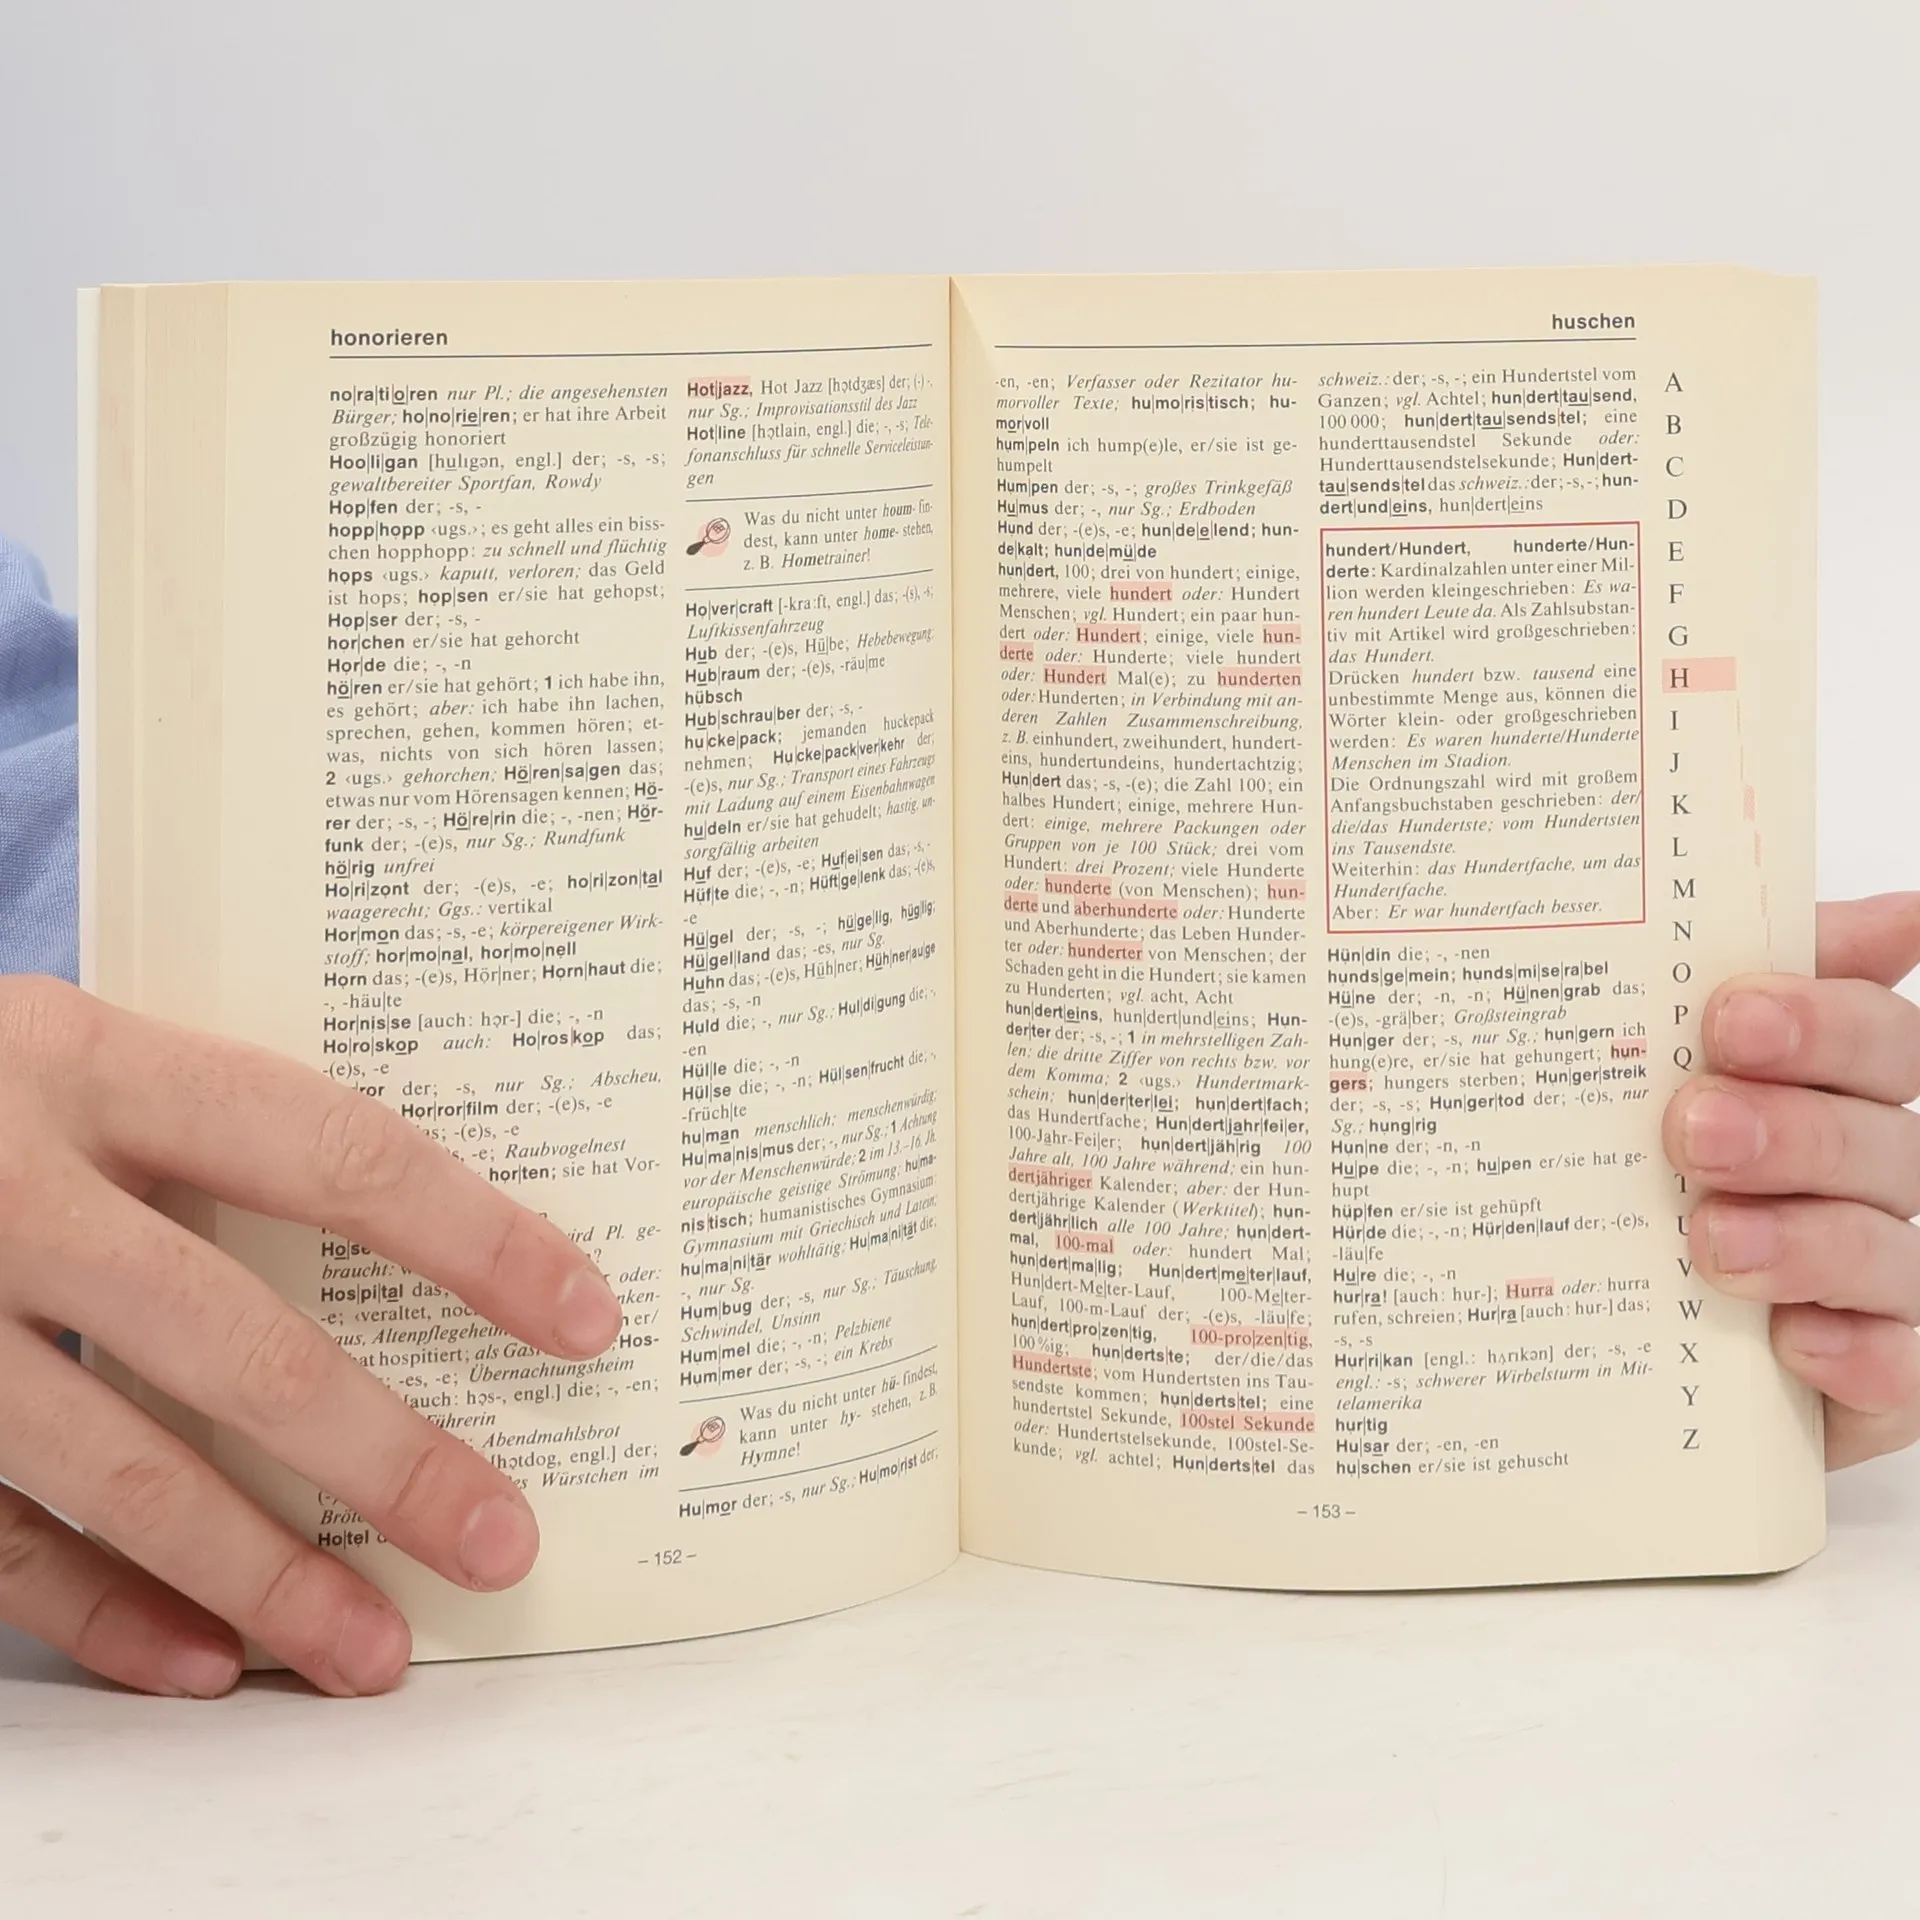 honorieren
no|ra|ti|o|ren nur Pl.; die angesehensten
Bürger; ho|no|rie|ren; er hat ihre Arbeit
großzügig honoriert
Hoo|li|gan [huligən, engl.] der; -s, -s;
gewaltbereiter Sportfan, Rowdy
Hop|fen der; -s, -
hopp|hopp ‹ugs.›; es geht alles ein biss-
chen hopphopp: zu schnell und flüchtig
hops ‹ugs.› kaputt, verloren; das Geld
ist hops; hop|sen er/sie hat gehopst;
Hop|ser der; -s, -
hor|chen er/sie hat gehorcht
Hor|de die; -, -n
hö|ren er/sie hat gehört; 1 ich habe ihn,
es gehört; aber: ich habe ihn lachen,
sprechen, gehen, kommen hören; et-
was, nichts von sich hören lassen;
2 ‹ugs.› gehorchen; Hö|ren|sa|gen das;
etwas nur vom Hörensagen kennen; Hö-
rer der; -s, -; Hö|re|rin die; -, -nen; Hör-
funk der; -(e)s, nur Sg.; Rundfunk
hö|rig unfrei
Ho|ri|zont der; -(e)s, -e; ho|ri|zon|tal
waagerecht; Ggs.: vertikal
Hor|mon das; -s, -e; körpereigener Wirk-
stoff; hor|mo|nal, hor|mo|nell
Horn das; -(e)s, Hör|ner; Horn|haut die;
-, -häu|te
Hor|nis|se [auch: hɔr-] die; -, -n
Ho|ro|skop auch: Ho|ros|kop das;
-(e)s, -e
ror der; -s, nur Sg.; Abscheu,
Hor|ror|film der; -(e)s, -e
as; -(e)s, -e
s, -e; Raubvogelnest
hor|ten; sie hat Vor-
wird Pl. ge-
Ho|se
braucht: oder:
Hos|pi|tal das; nken-
-e; ‹veraltet, noc n er/
aus, Altenpflegeheim Hos-
hat hospitiert; als Gas
-es, -e; Übernachtungsheim
[auch: hɔs-, engl.] die; -, -en;
Führerin
Abendmahlsbrot
[hɔtdɔg, engl.] der;
es Würstchen im
Bröt
Ho|tel
Hot|jazz, Hot Jazz [hɔtdʒæs] der; (-) -,
nur Sg.; Improvisationsstil des Jazz
Hot|line [hɔtlain, engl.] die; -, -s; Tele-
fonanschluss für schnelle Serviceleistun-
gen
Was du nicht unter houm- fin-
dest, kann unter home- stehen,
z. B. Hometrainer!
Ho|ver|craft [-kra:ft, engl.] das; -(s), -s;
Luftkissenfahrzeug
Hub der; -(e)s, Hü|be; Hebebewegung;
Hub|raum der; -(e)s, -räu|me
hübsch
Hub|schrau|ber der; -s, -
hu|cke|pack; jemanden huckepack
nehmen; Hu|cke|pack|ver|kehr der;
-(e)s, nur Sg.; Transport eines Fahrzeugs
mit Ladung auf einem Eisenbahnwagen
hu|deln er/sie hat gehudelt; hastig, un-
sorgfältig arbeiten
Huf der; -(e)s, -e; Huf|ei|sen das; -s, -
Hüf|te die; -, -n; Hüft|ge|lenk das; -(e)s,
-e
Hü|gel der; -s, -; hü|ge|lig, hüg|lig;
Hü|gel|land das; -es, nur Sg.
Huhn das; -(e)s, Hüh|ner; Hüh|ner|au|ge
das; -s, -n
Huld die; -, nur Sg.; Hul|di|gung die; -,
-en
Hül|le die; -, -n
Hül|se die; -, -n; Hül|sen|frucht die; -,
-früch|te
hu|man menschlich; menschenwürdig;
Hu|ma|nis|mus der; -, nur Sg.; 1 Achtung
vor der Menschenwürde; 2 im 13.–16. Jh.
europäische geistige Strömung; hu|ma-
nis|tisch; humanistisches Gymnasium:
Gymnasium mit Griechisch und Latein;
hu|ma|ni|tär wohltätig; Hu|ma|ni|tät die;
-, nur Sg.
Hum|bug der; -s, nur Sg.; Täuschung,
Schwindel, Unsinn
Hum|mel die; -, -n; Pelzbiene
Hum|mer der; -s, -; ein Krebs
Was du nicht unter hü- findest,
kann unter hy- stehen, z. B.
Hymne!
Hu|mor der; -s, nur Sg.; Hu|mo|rist der;
– 152 –
huschen
-en, -en; Verfasser oder Rezitator hu-
morvoller Texte; hu|mo|ris|tisch; hu-
mor|voll
hum|peln ich hump(e)le, er/sie ist ge-
humpelt
Hum|pen der; -s, -; großes Trinkgefäß
Hu|mus der; -, nur Sg.; Erdboden
Hund der; -(e)s, -e; hun|de|e|lend; hun-
de|kalt; hun|de|mü|de
hun|dert, 100; drei von hundert; einige,
mehrere, viele hundert oder: Hundert
Menschen; vgl. Hundert; ein paar hun-
dert oder: Hundert; einige, viele hun-
derte oder: Hunderte; viele hundert
oder: Hundert Mal(e); zu hunderten
oder: Hunderten; in Verbindung mit an-
deren Zahlen Zusammenschreibung,
z. B. einhundert, zweihundert, hundert-
eins, hundertundeins, hundertachtzig;
Hun|dert das; -s, -(e); die Zahl 100; ein
halbes Hundert; einige, mehrere Hun-
dert: einige, mehrere Packungen oder
Gruppen von je 100 Stück; drei vom
Hundert: drei Prozent; viele Hunderte
oder: hunderte (von Menschen); hun-
derte und aberhunderte oder: Hunderte
und Aberhunderte; das Leben Hunder-
ter oder: hunderter von Menschen; der
Schaden geht in die Hundert; sie kamen
zu Hunderten; vgl. acht, Acht
hun|dert|eins, hun|dert|und|eins; Hun-
der|ter der; -s, -; 1 in mehrstelligen Zah-
len: die dritte Ziffer von rechts bzw. vor
dem Komma; 2 ‹ugs.› Hundertmark-
schein; hun|der|ter|lei; hun|dert|fach;
das Hundertfache; Hun|dert|jahr|fei|er,
100-Jahr-Fei|er; hun|dert|jäh|rig 100
Jahre alt, 100 Jahre während; ein hun-
dertjähriger Kalender; aber: der Hun-
dertjährige Kalender (Werktitel); hun-
dert|jähr|lich alle 100 Jahre; hun|dert-
mal, 100-mal oder: hundert Mal;
hun|dert|ma|lig; Hun|dert|me|ter|lauf,
Hun|dert-Me|ter-Lauf, 100-Me|ter-
Lauf, 100-m-Lauf der; -(e)s, -läu|fe;
hun|dert|pro|zen|tig, 100-pro|zen|tig,
100%ig; hun|derts|te; der/die/das
Hundertste; vom Hundertsten ins Tau-
sendste kommen; hun|derts|tel; eine
hundertstel Sekunde, 100stel Sekunde
oder: Hundertstelsekunde, 100stel-Se-
kunde; vgl. achtel; Hun|derts|tel das
schweiz.: der; -s, -; ein Hundertstel vom
Ganzen; vgl. Achtel; hun|dert|tau|send,
100 000; hun|dert|tau|sends|tel; eine
hunderttausendstel Sekunde oder:
Hunderttausendstelsekunde; Hun|dert-
tau|sends|tel das schweiz.: der; -s, -; hun-
dert|und|eins, hun|dert|eins
hundert/Hundert, hunderte/Hun-
derte: Kardinalzahlen unter einer Mil-
lion werden kleingeschrieben: Es wa-
ren hundert Leute da. Als Zahlsubstan-
tiv mit Artikel wird großgeschrieben:
das Hundert.
Drücken hundert bzw. tausend eine
unbestimmte Menge aus, können die
Wörter klein- oder großgeschrieben
werden: Es waren hunderte/Hunderte
Menschen im Stadion.
Die Ordnungszahl wird mit großem
Anfangsbuchstaben geschrieben: der/
die/das Hundertste; vom Hundertsten
ins Tausendste.
Weiterhin: das Hundertfache, um das
Hundertfache.
Aber: Er war hundertfach besser.
Hün|din die; -, -nen
hunds|ge|mein; hunds|mi|se|ra|bel
Hü|ne der; -n, -n; Hü|nen|grab das;
-(e)s, -grä|ber; Großsteingrab
Hun|ger der; -s, nur Sg.; hun|gern ich
hung(e)re, er/sie hat gehungert; hun-
gers; hungers sterben; Hun|ger|streik
der; -s, -s; Hun|ger|tod der; -(e)s, nur
Sg.; hung|rig
Hun|ne der; -n, -n
Hu|pe die; -, -n; hu|pen er/sie hat ge-
hupt
hüp|fen er/sie ist gehüpft
Hür|de die; -, -n; Hür|den|lauf der; -(e)s,
-läu|fe
Hu|re die; -, -n
hur|ra! [auch: hur-]; Hurra oder: hurra
rufen, schreien; Hur|ra [auch: hur-] das;
-s, -s
Hur|ri|kan [engl.: hʌrıkən] der; -s, -e
engl.: -s; schwerer Wirbelsturm in Mit-
telamerika
hur|tig
Hu|sar der; -en, -en
hu|schen er/sie ist gehuscht
– 153 –
A
B
C
D
E
F
G
H
I
J
K
L
M
N
O
P
Q
T
U
V
W
X
Y
Z